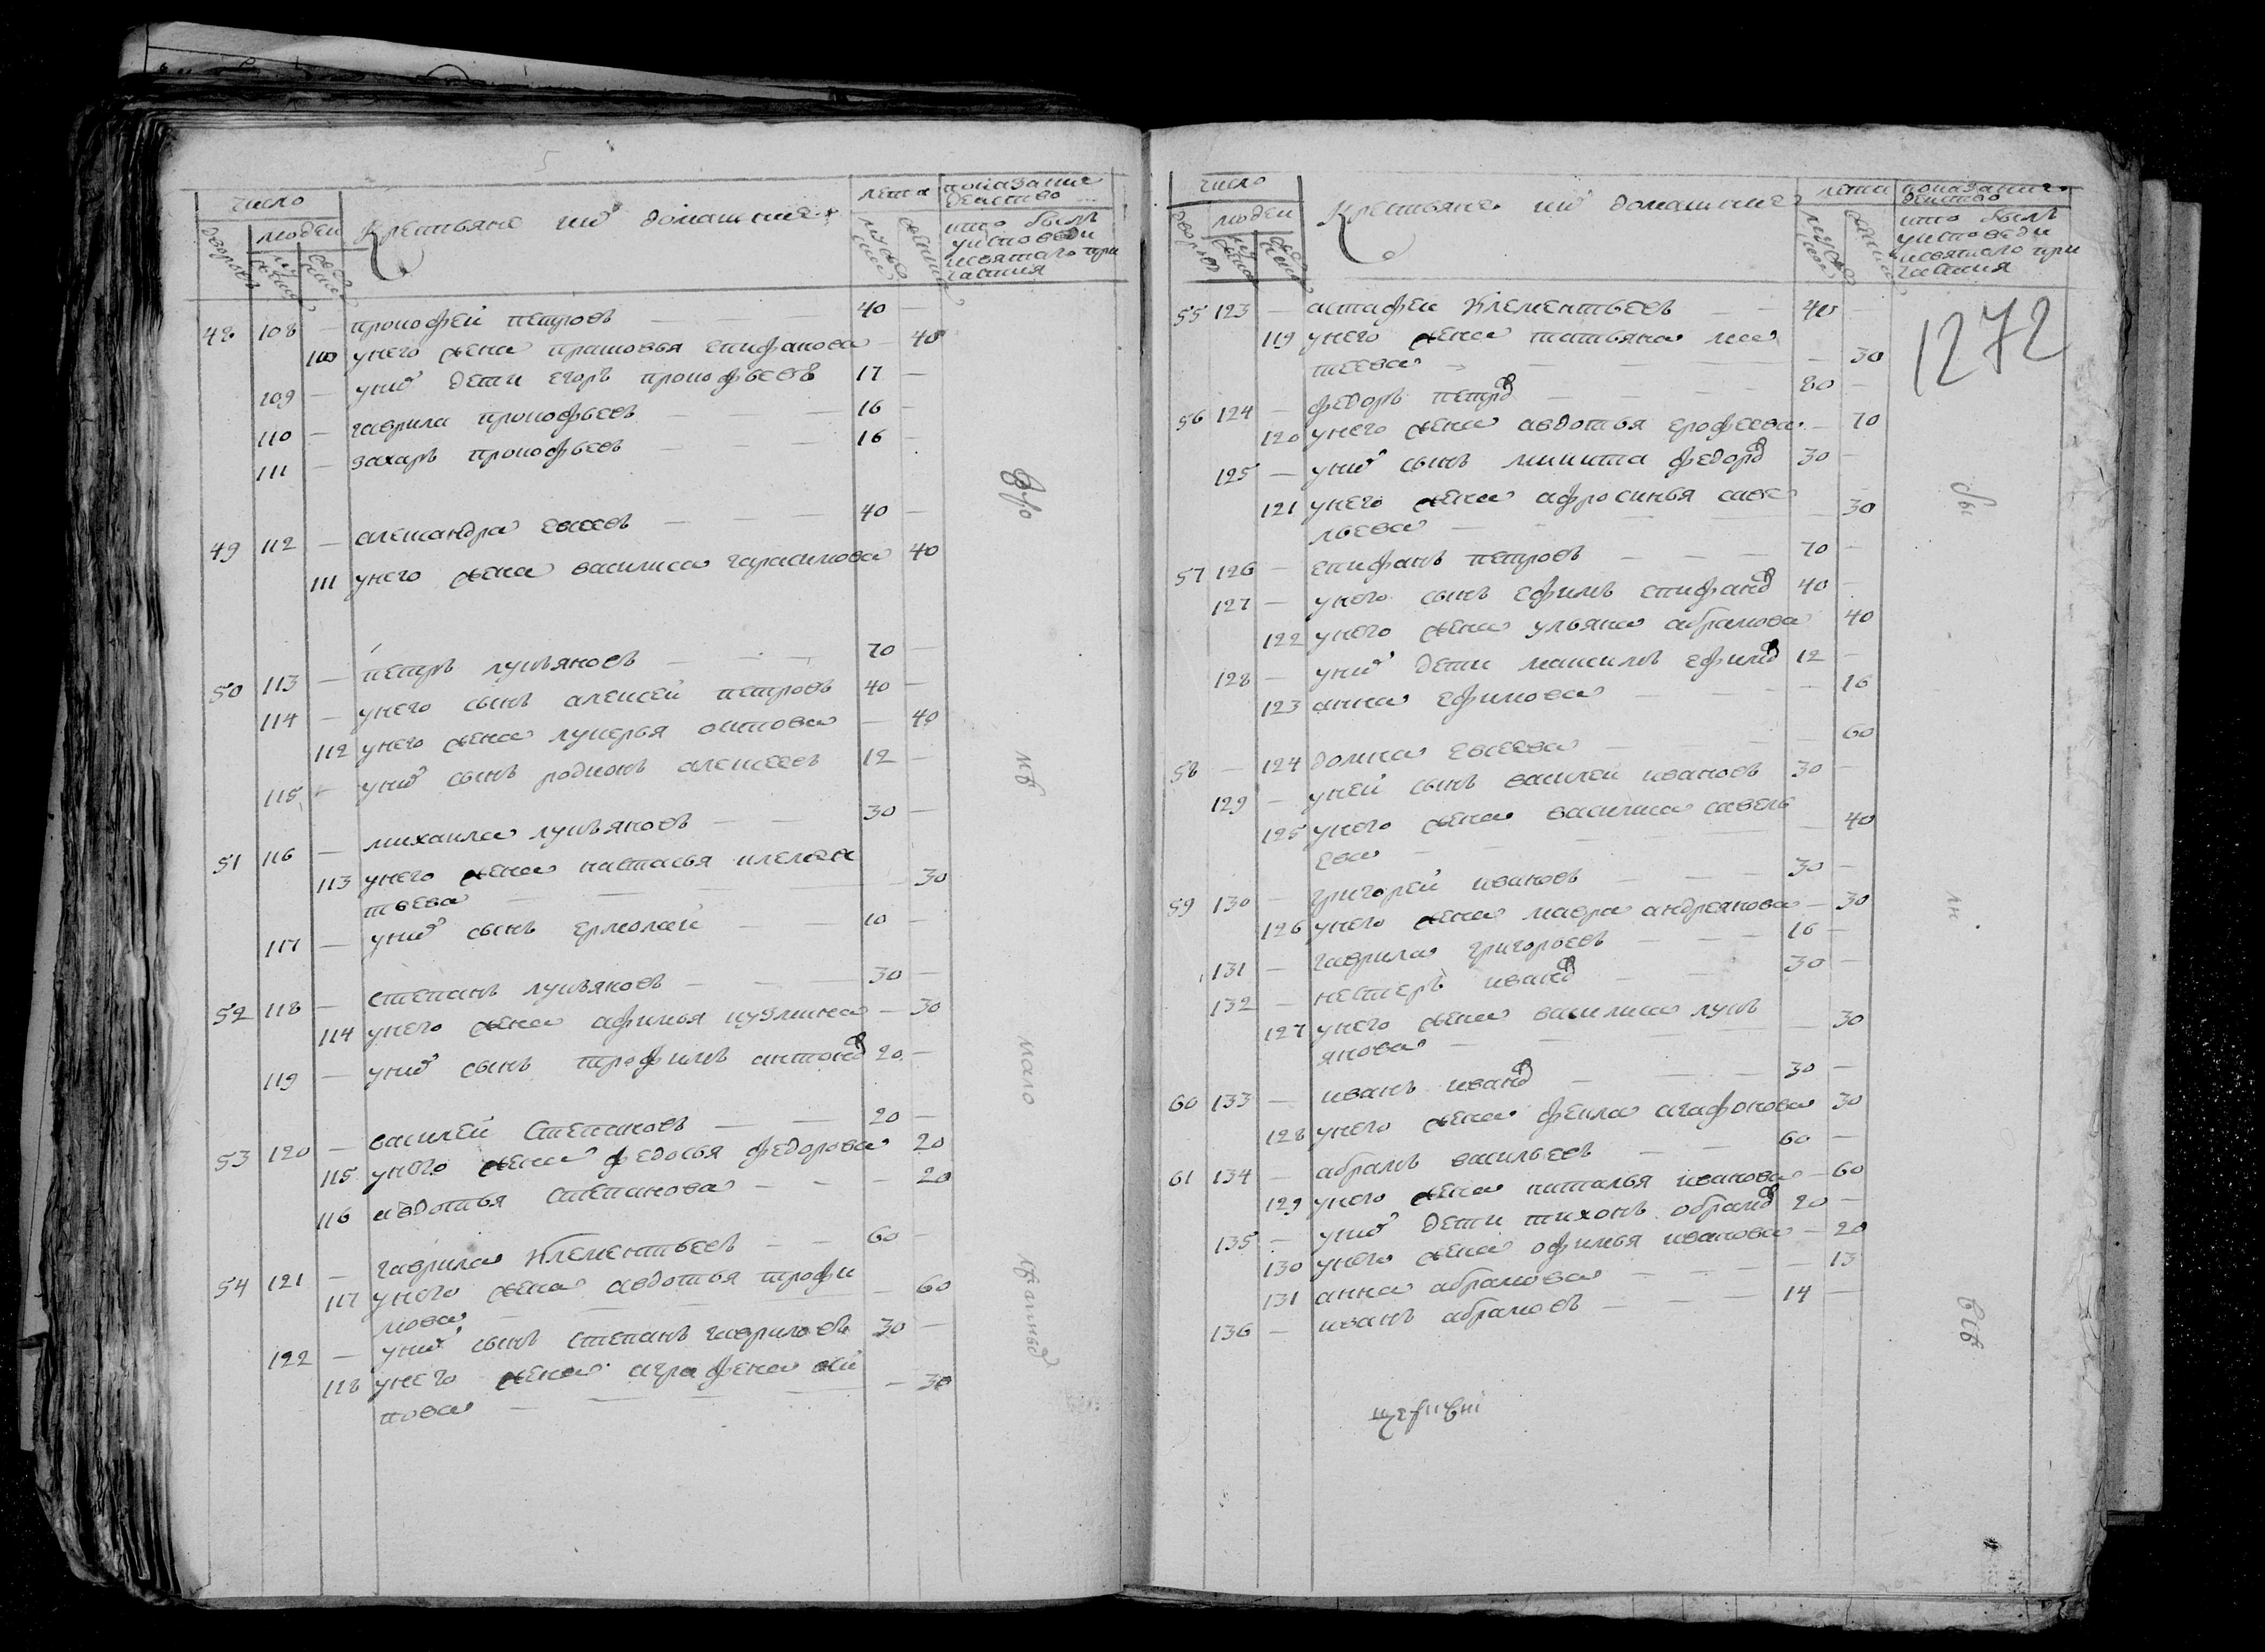 число
людеи
дворовъ
мужеска
женска
Крестьяне ихъ домашние
лета
мужеска
женска
показание
действо
кто былъ
уисповеди
исвятаго при
частия
48 108 — прокофей петровъ — 40 —
110 унего жена прасковья епифанова — 40
109 — унихъ дети егоръ прокофьевъ 17 —
110 — гаврила прокофьевъ — 16 —
111 — захаръ прокофьевъ — 16 —
49 112 — александра евсеевъ — 40 —
111 унего жена василиса гарасимова 40
50 113 — петръ лукьяновъ — 70 —
114 — унего сынъ алексей петровъ 40 —
112 унего жена лукерья — 40
115 — унихъ сынъ родионъ алексеевъ 12 —
51 116 — михаила лукьяновъ — 30 —
113 унего жена настасья клемен
тьева — 30
117 — унихъ сынъ ермолай — 10 —
52 118 — степанъ лукьяновъ — 30 —
114 унего жена афимья кузмина — 30
119 — унихъ сынъ трофимъ антонов 20 —
53 120 — василей степановъ — 20 —
115 унего жена федосья федорова 20
116 авдотья степанова — 20
54 121 — гаврила Клементьевъ — 60 —
117 унего жена авдотья трофи
мова — 60
122 — унихъ сынъ степанъ гавриловъ 30 —
118 унего жена аграфена
пова — 30
мало
число
людеи
дворовъ
мужеска
женска
Крестьяне ихъ домашние
лета
мужеска
женска
показание
действо
кто былъ
уисповеди
исвятаго при
частия
1272
55 123 — астафеи Клементьевъ — 40 —
119 унего жена татьяна ма
теева — 30
56 124 — федоръ петров — 80 —
120 унего жена авдотья ерофеева — 70
125 — унихъ сынъ никита федоров 30 —
121 унего жена афросинья саве
льева — 30
57 126 — епифанъ петровъ — 70 —
127 — унего сынъ ефимъ епифанов 40 —
122 унего жена ульяна абрамова 40
128 — унихъ дети максимъ ефимов 12 —
123 анна ефимова — 16
58 — 124 домна евсеева — 60
129 — уней сынъ василей ивановъ 30 —
125 унего жена василиса савель
ева — 40
59 130 — григорей ивановъ — 30 —
126 унего жена мавра андреянова — 30
131 — гаврила григорьевъ — 16 —
132 — нестеръ иванов — 30 —
127 унего жена василиса лукь
янова — 30
60 133 — иванъ иванов — 30 —
128 унего жена фекла агафонова 30
61 134 — абрамъ васильевъ — 60 —
129 унего жена наталья иванова — 60
135 — унихъ дети тихонъ обрамов 20 —
130 унего жена офимья иванова — 20
131 анна абрамова — 13
136 — иванъ абрамовъ — 14 —